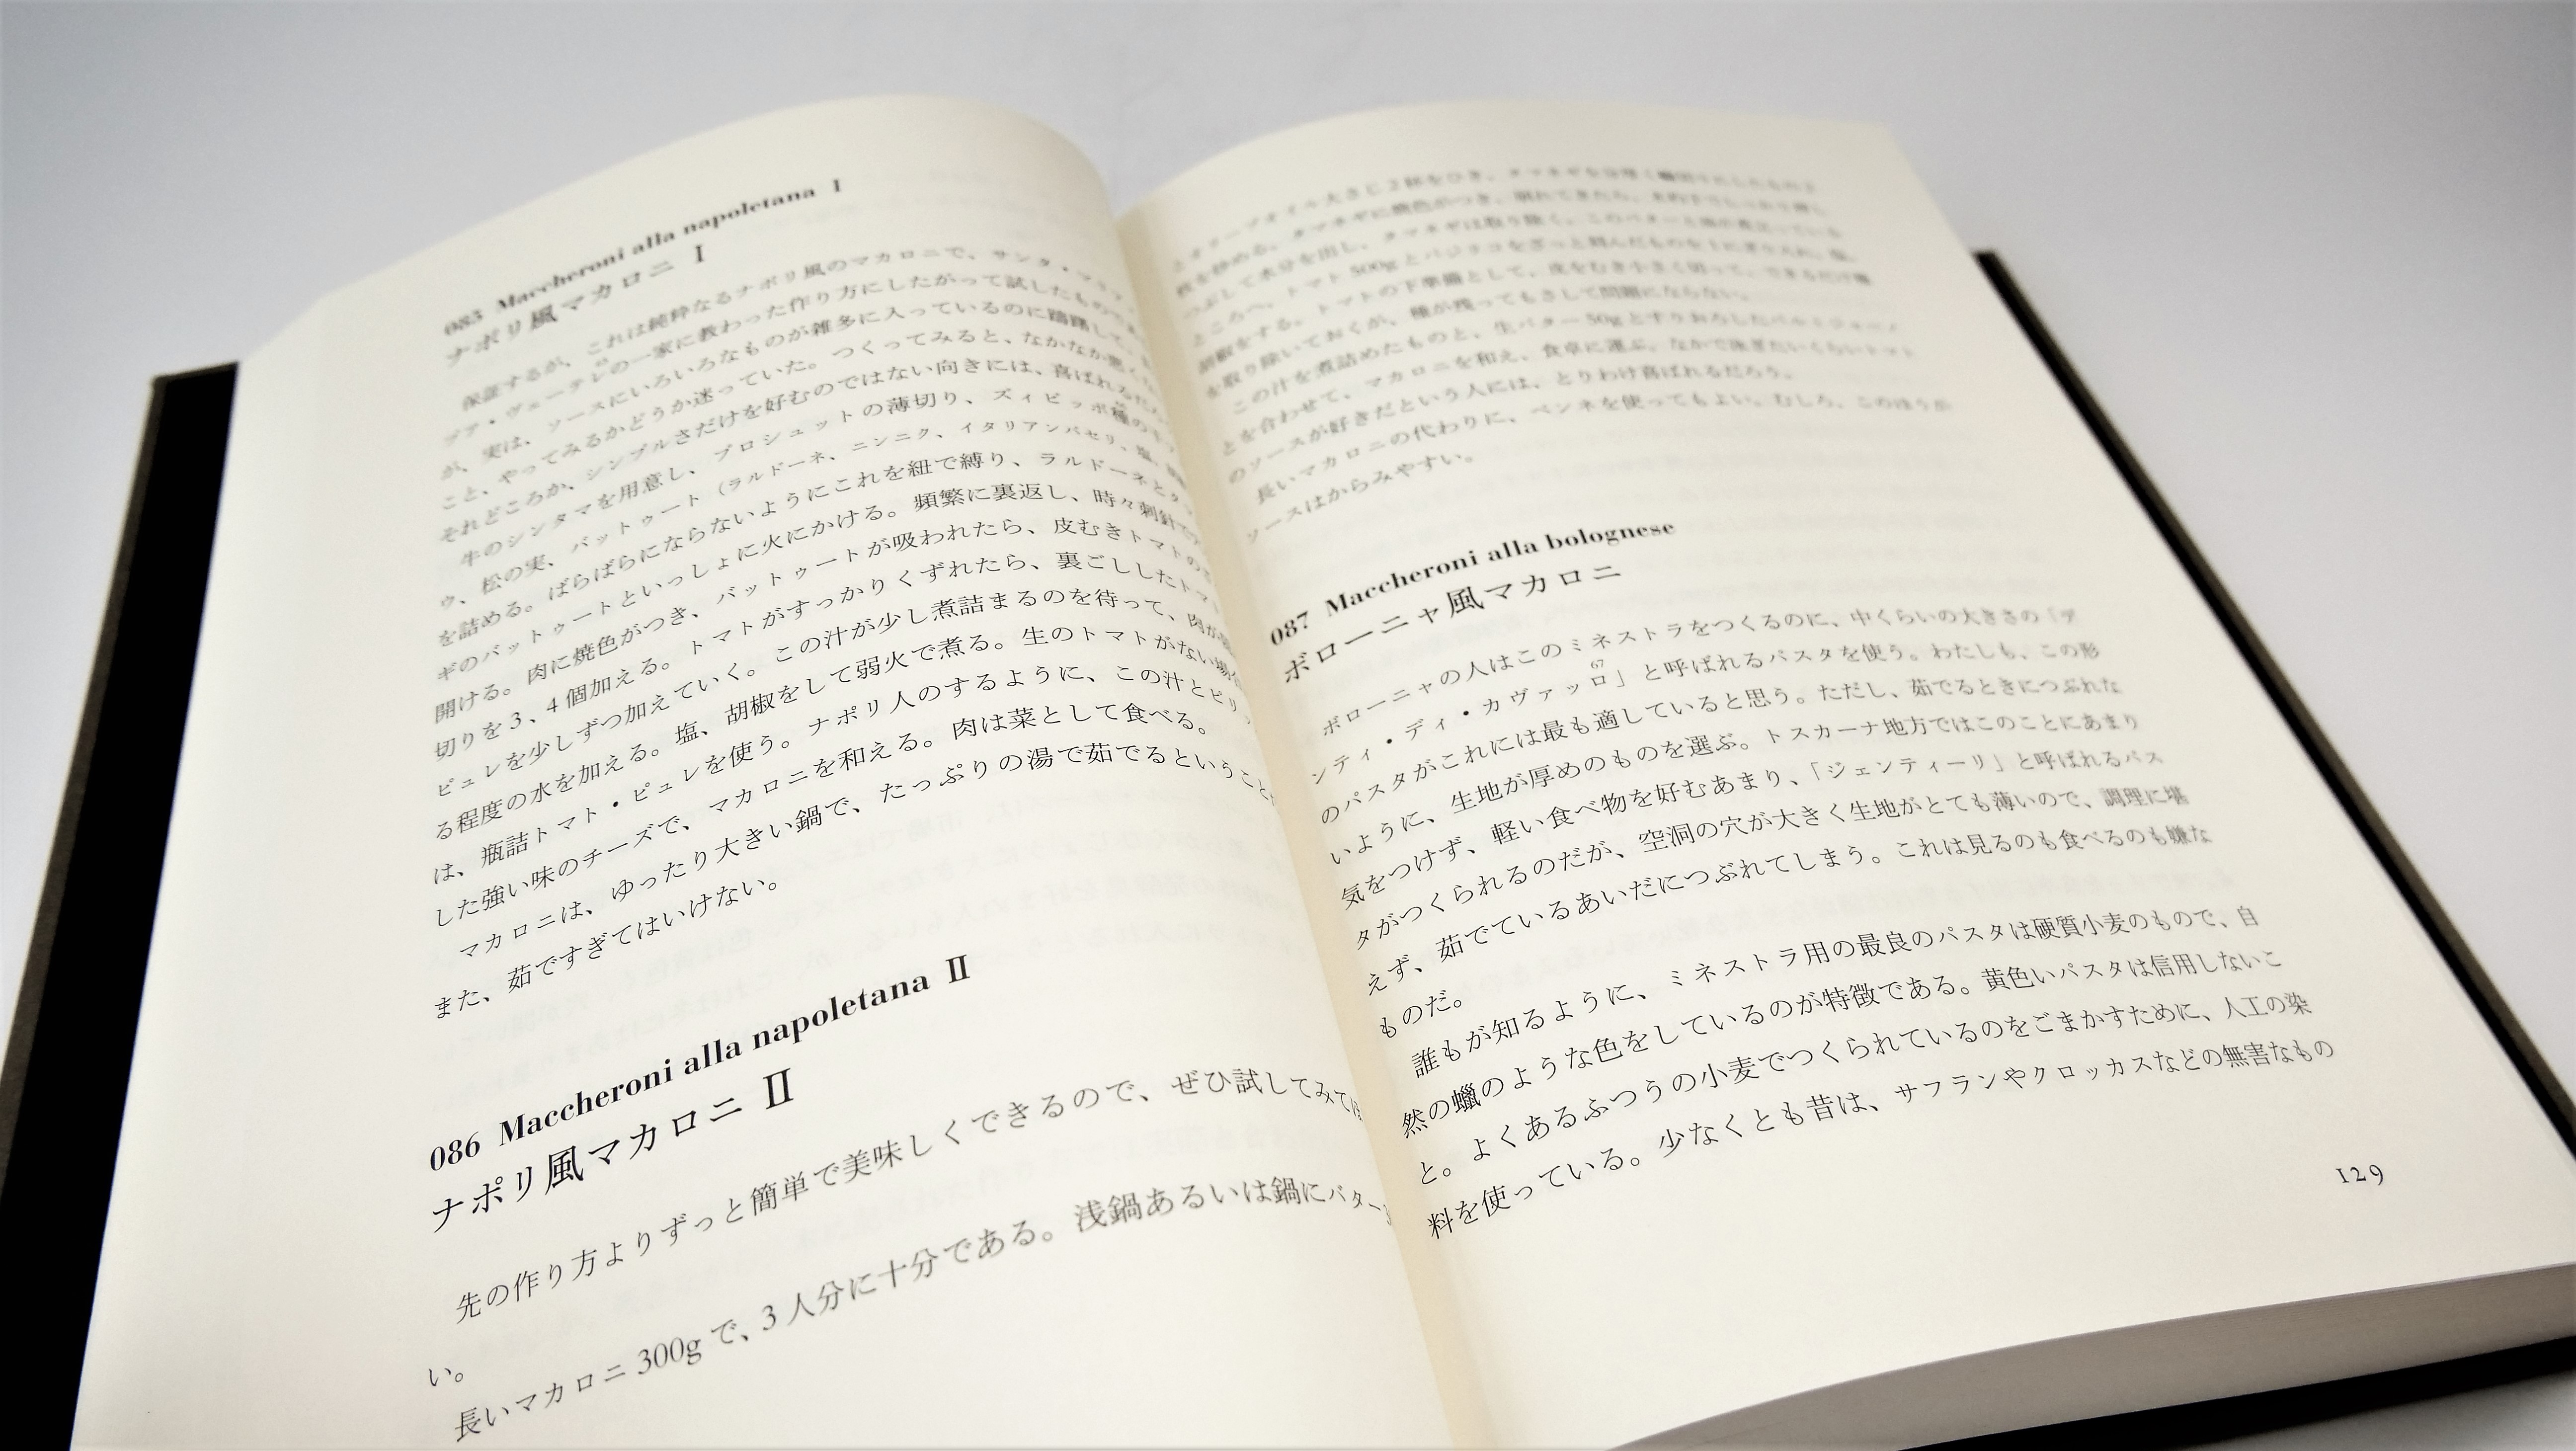 085 Maccheroni alla napoletana I
ナポリ風マカロニ I
保証するが、これは純粋なるナポリ風のマカロニで、サンタ・マリア
ヴェーテレの一家に教わった作り方にしたがって試したものである
が、実は、ソースにいろいろなものが雑多に入っているのに躊躇して、
こと、やってみるかどうか迷っていた。つくってみると、なかなか悪くない
それどころか、シンプルさだけを好むのではない向きには、喜ばれる
牛のシンタマを用意し、プロシュットの薄切り、ズィビッボ種の
ウ、松の実、バットゥート（ラルドーネ、ニンニク、イタリアンパセリ、塩、
を詰める。ばらばらにならないようにこれを紐で縛り、ラルドーネと
ギのバットゥートといっしょに火にかける。頻繁に裏返し、時々刺針で
開ける。肉に焼色がつき、バットゥートが吸われたら、皮むきトマトの
切りを3、4個加える。トマトがすっかりくずれたら、裏ごししたトマト
ピュレを少しずつ加えていく。この汁が少し煮詰まるのを待って、肉が
る程度の水を加える。塩、胡椒をして弱火で煮る。生のトマトがない場合
は、瓶詰トマト・ピュレを使う。ナポリ人のするように、この汁とピリッ
した強い味のチーズで、マカロニを和える。肉は菜として食べる。
マカロニは、ゆったり大きい鍋で、たっぷりの湯で茹でるということ
また、茹ですぎてはいけない。
086 Maccheroni alla napoletana II
ナポリ風マカロニ II
先の作り方よりずっと簡単で美味しくできるので、ぜひ試してみて
い。
長いマカロニ300gで、3人分に十分である。浅鍋あるいは鍋にバター
とオリーブオイル大さじ2杯をひき、
枚を炒める。タマネギに焼色がつき、崩れてきたら、
つぶして水分を出し、タマネギは取り除く。このバターと油が煮立っている
ところへ、トマト500gとバジリコをざっと刻んだものを1にぎり入れ、塩、
胡椒をする。トマトの下準備として、皮をむき小さく切って、できるだけ種
を取り除いておくが、種が残ってもさして問題にならない。
この汁を煮詰めたものと、生バター50gとすりおろしたパルミジャーノ
とを合わせて、マカロニを和え、食卓に運ぶ。なかで泳ぎたいくらいトマト
のソースが好きだという人には、とりわけ喜ばれるだろう。
長いマカロニの代わりに、ペンネを使ってもよい。むしろ、このほうが
ソースはからみやすい。
087 Maccheroni alla bolognese
ボローニャ風マカロニ
ボローニャの人はこのミネストラをつくるのに、中くらいの大きさの「デ
ンティ・ディ・カヴァッロ」と呼ばれるパスタを使う。わたしも、この形
67
のパスタがこれには最も適していると思う。ただし、茹でるときにつぶれな
いように、生地が厚めのものを選ぶ。トスカーナ地方ではこのことにあまり
気をつけず、軽い食べ物を好むあまり、「ジェンティーリ」と呼ばれるパス
タがつくられるのだが、空洞の穴が大きく生地がとても薄いので、調理に堪
えず、茹でているあいだにつぶれてしまう。これは見るのも食べるのも嫌な
ものだ。
誰もが知るように、ミネストラ用の最良のパスタは硬質小麦のもので、自
然の蠟のような色をしているのが特徴である。黄色いパスタは信用しないこ
と。よくあるふつうの小麦でつくられているのをごまかすために、人工の染
料を使っている。少なくとも昔は、サフランやクロッカスなどの無害なもの
129